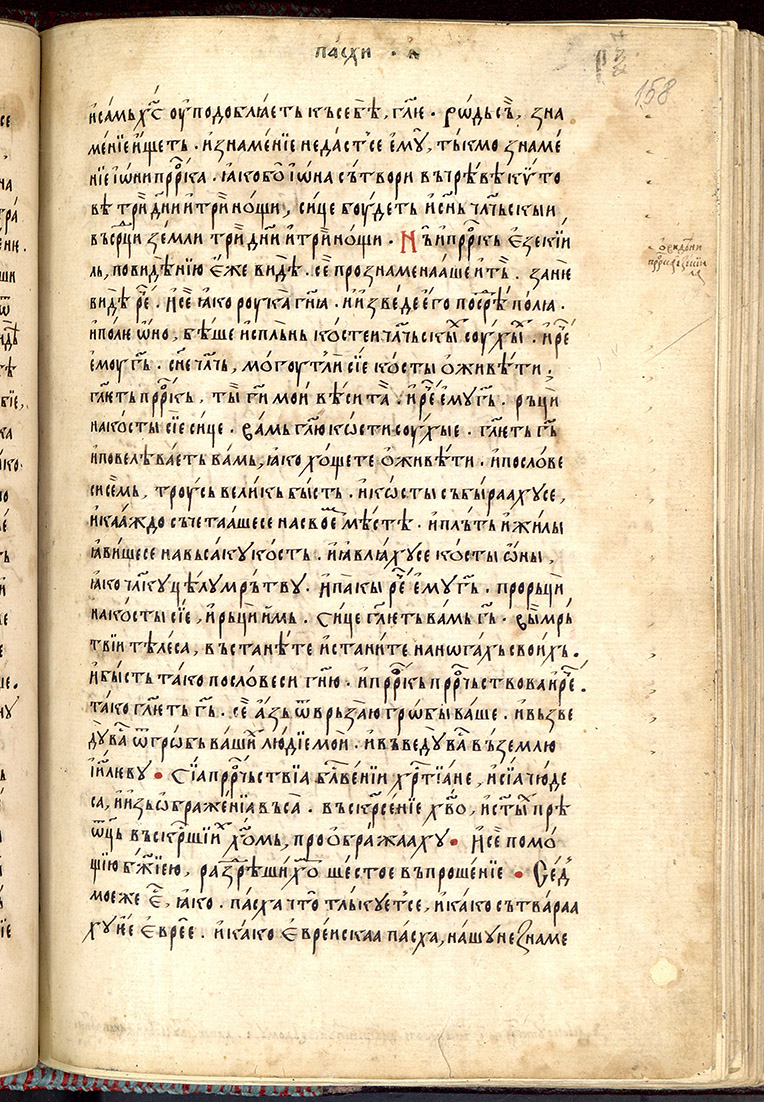 пасхи · а҃
158
исамь х҃с оуподоблꙗеть къ себѣ, гл҃ѥ · родьсъ, зна
менїе ищеть · и знаменїе недастсе емѹ, тъкмо знаме
нїе їѡни прⷪ҇рка · ꙗкобо їѡна сътвори въ чрѣвѣ кито
вѣ три дн҃и и три нощи, сице боудеть и сн҃ь чл҃чьскыи
въ срⷣци земли три дн҃и и три нощи · Нъ и прⷪ҇ркь езекїи
ль, по видѣнїю еже видѣ · се прознаменааше итъ · занѥ
видѣ рⷱ҇е · и се ꙗко роука гн҃ꙗ · и изведе его посрⷣѣ полꙗ ·
и поле ѡно, бѣше испльнь костеи чл҃чьскыⷯ соухыⷯ · и рⷱ҇е
емоу гь҃ · сн҃е чл҃чь, могоутли сїе косты оживѣти ;
гл҃еть прⷪ҇ркь, ты гй҃ мои вѣси та · и рⷱ҇е емѹ гь҃ · рьци
на косты сїе сице · вамь гл҃ю кости соухые · гл҃еть гь҃
и повелѣваеть вамь, ꙗко хощете оживѣти · и по слове
си семь, троусь великь бысть · и косты събыраахусе,
и каꙗждо съчетаашесе на своеⷨ мѣстѣ · и плъть и жилы
ꙗвишесе на вьсаку кость · и ꙗвлꙗхусе косты ѡны,
ꙗко чл҃ку цѣлу мрътву · и пакы рⷱ҇е емѹ гь҃ · прорьци
на косты сїе, и рьци имь · Сице гл҃еть вамь гь҃ · вы мрь
твїи тѣлеса, въстанѣте и станите на ногахъ своихъ ·
и бысть тако по словеси гн҃ю · и прⷪ҇ркь прⷪ҇рчьствова и рⷱ҇е ·
тако гл҃еть гь҃ · се азь ѿврьзаю гробы ваше · и възве
ду ва ѿ гробь вашиⷯ людїе мои · и въведу ва въ землю
їи҃леву · Сїа прⷪ҇рчьствїа бл҃гвенїи хрⷭ҇тїане, и сїа чюде
са, и изьображенїа въса · въскрⷭ҇енїе хв҃о, и ст҃ыⷯ прѣ
ѿць въскрⷭ҇шїиⷯ хⷭ҇омь, проображааху · И се помо
щїю бж҃їею, разрѣшихоⷨ шестое въпрошенїе · Седⷨ
мое же еⷭ҇, ꙗко · пасха что тлъкуетсе, и како сътвараа
ху ѥ евреѥ · и како еврейскаа пасха, нашу не знаме